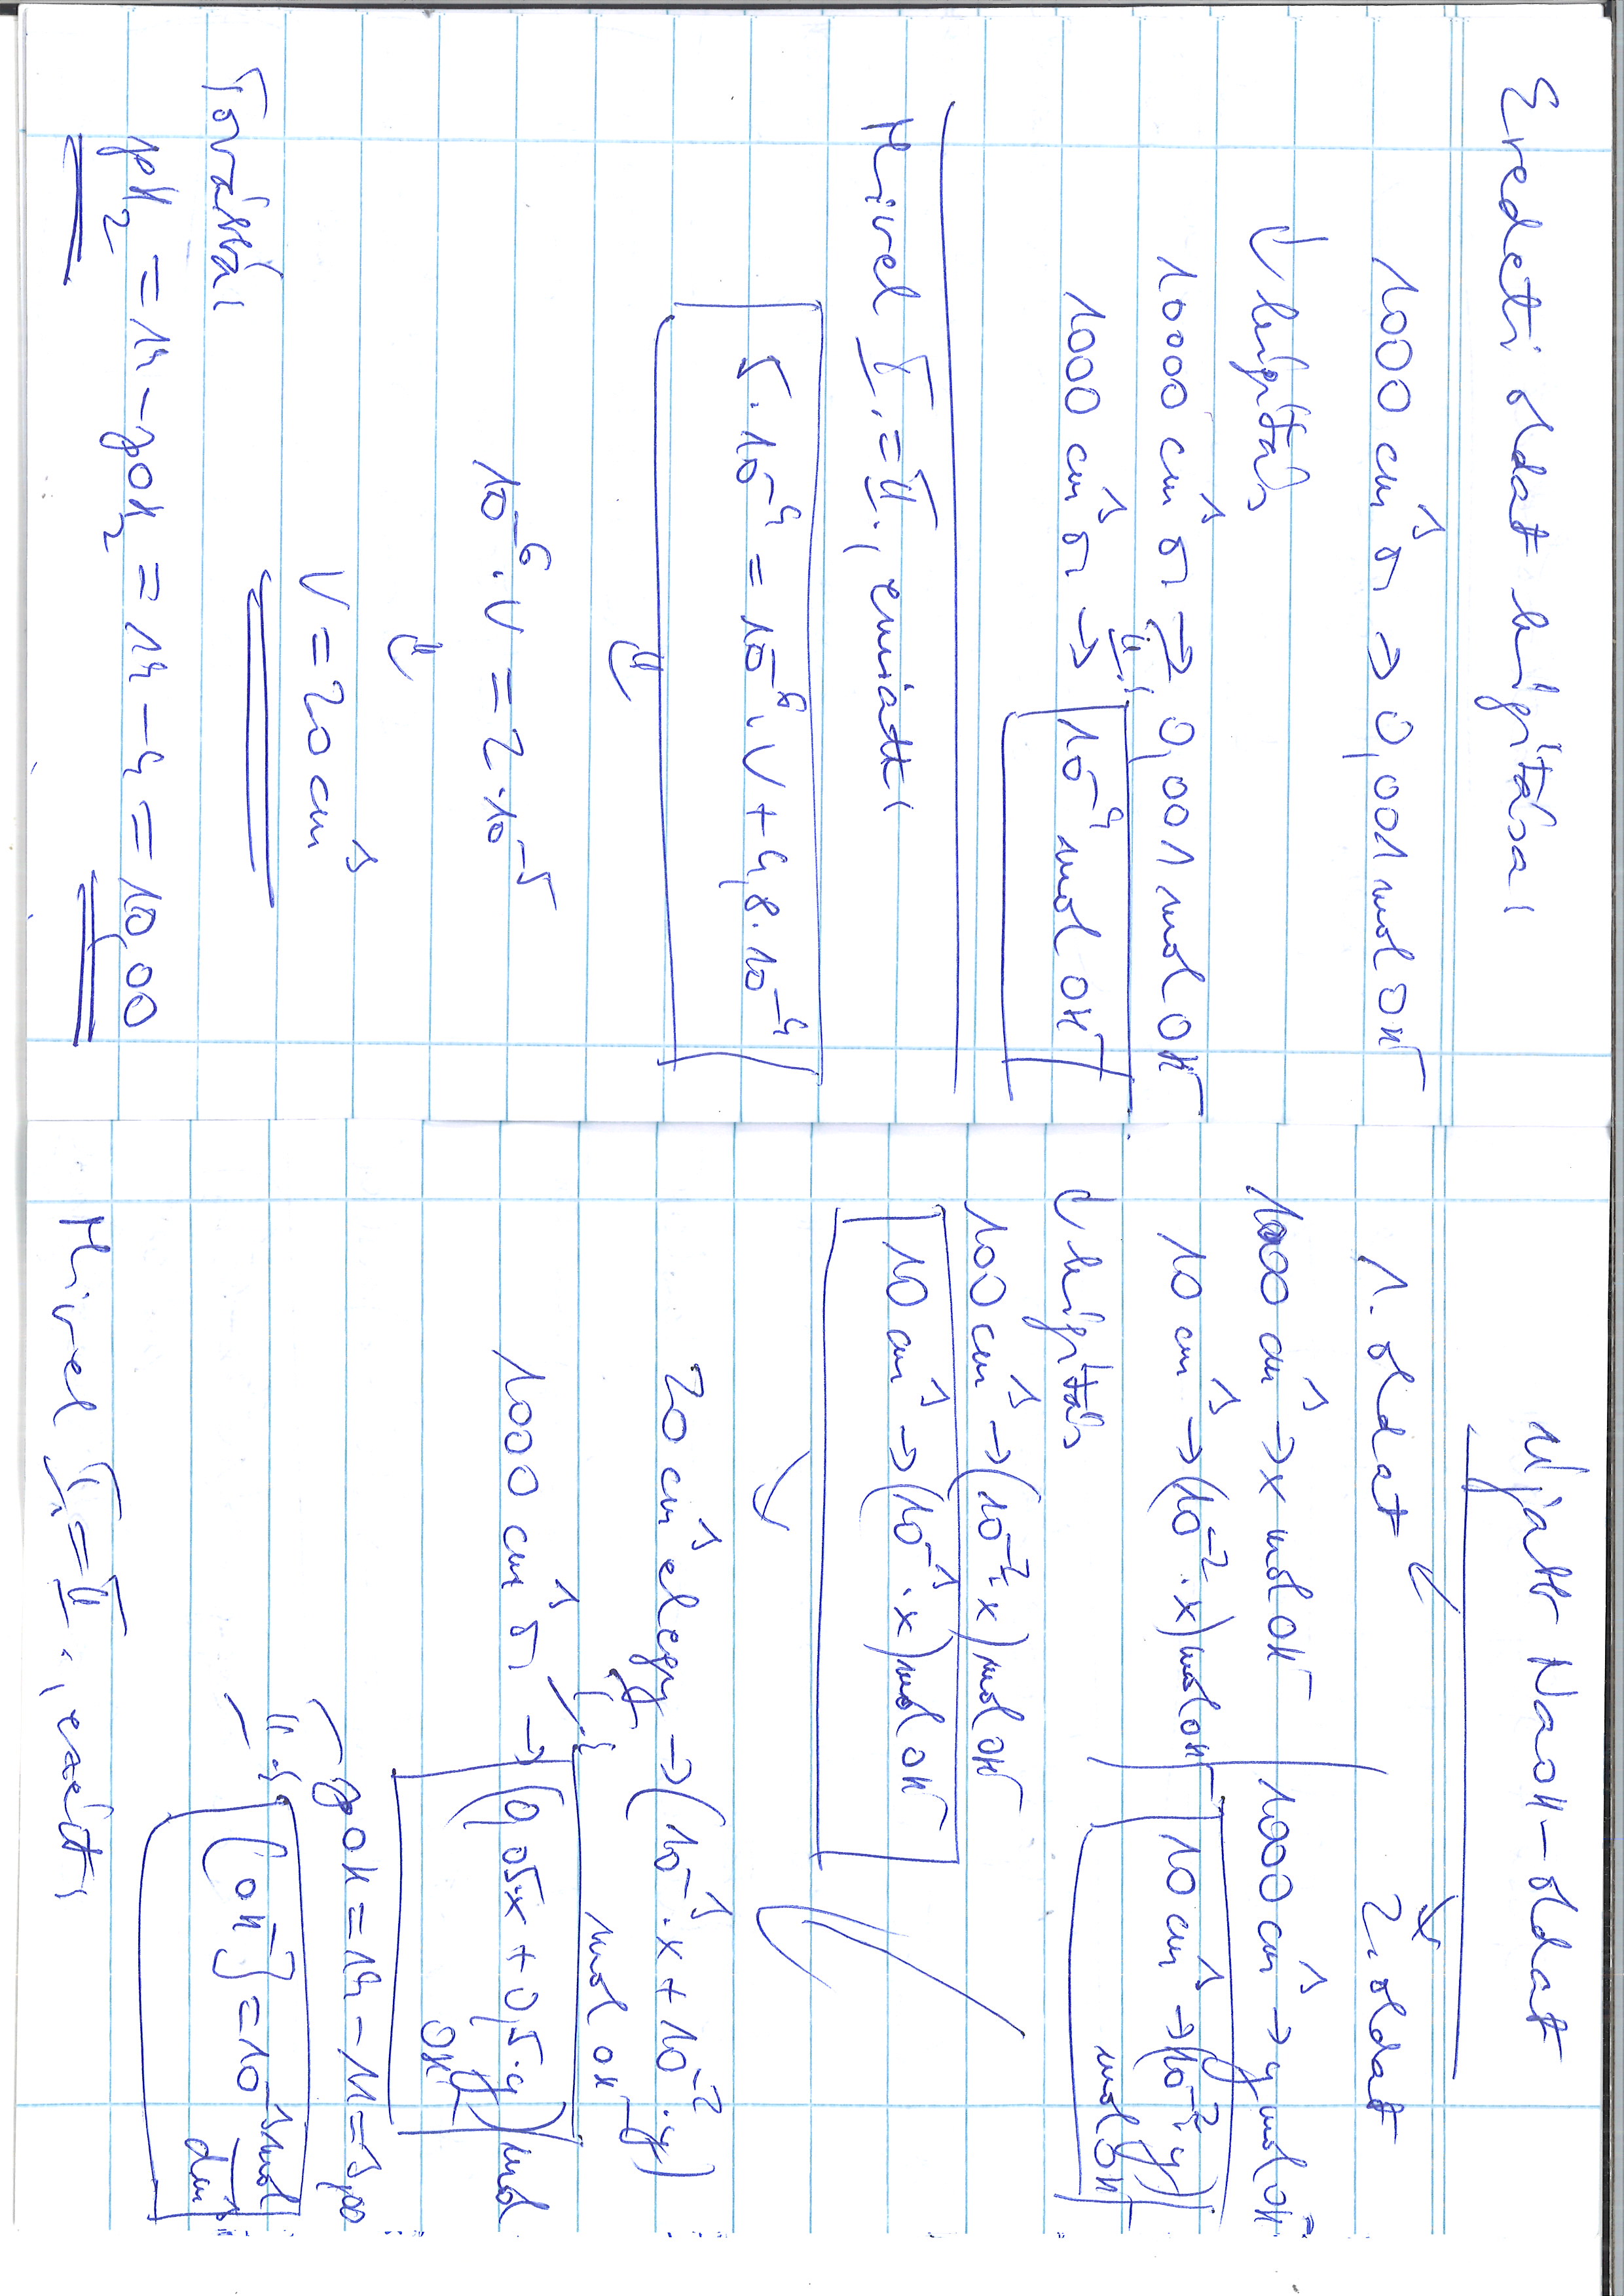 Eredeti oldat hígítása:
1000 cm³ ó → 0,001 mol OH⁻
↓ hígítás
10000 cm³ ó → 0,001 mol OH⁻
1000 cm³ ó → 10⁻⁴ mol OH⁻
II.:
Mivel I. = II., emiatt:
5·10⁻⁴ = 10⁻⁶·V + 4,8·10⁻⁴
⇓
10⁻⁶·V = 2·10⁻⁵
⇓
V = 20 cm³
Továbbá:
pH₂ = 14 - pOH₂ = 14 - 4 = 10,00
Híjatt NaOH-oldat
1. oldat
2. oldat
1000 cm³ → x mol OH⁻
10 cm³ → (10⁻²·x) mol OH⁻
↓ hígítás
100 cm³ → (10⁻²·x) mol OH⁻
10 cm³ → (10⁻³·x) mol OH⁻
1000 cm³ → y mol OH⁻
10 cm³ → (10⁻²·y)
mol OH⁻
20 cm³ elegy → (10⁻³·x + 10⁻²·y)
mol OH⁻
I.:
1000 cm³ ó → (0,05x + 0,5·y) mol
OH⁻
pOH = 14 - 11 = 3,00
II.:
[OH⁻] = 10⁻³ mol/dm³
Mivel I. = II., ezért: